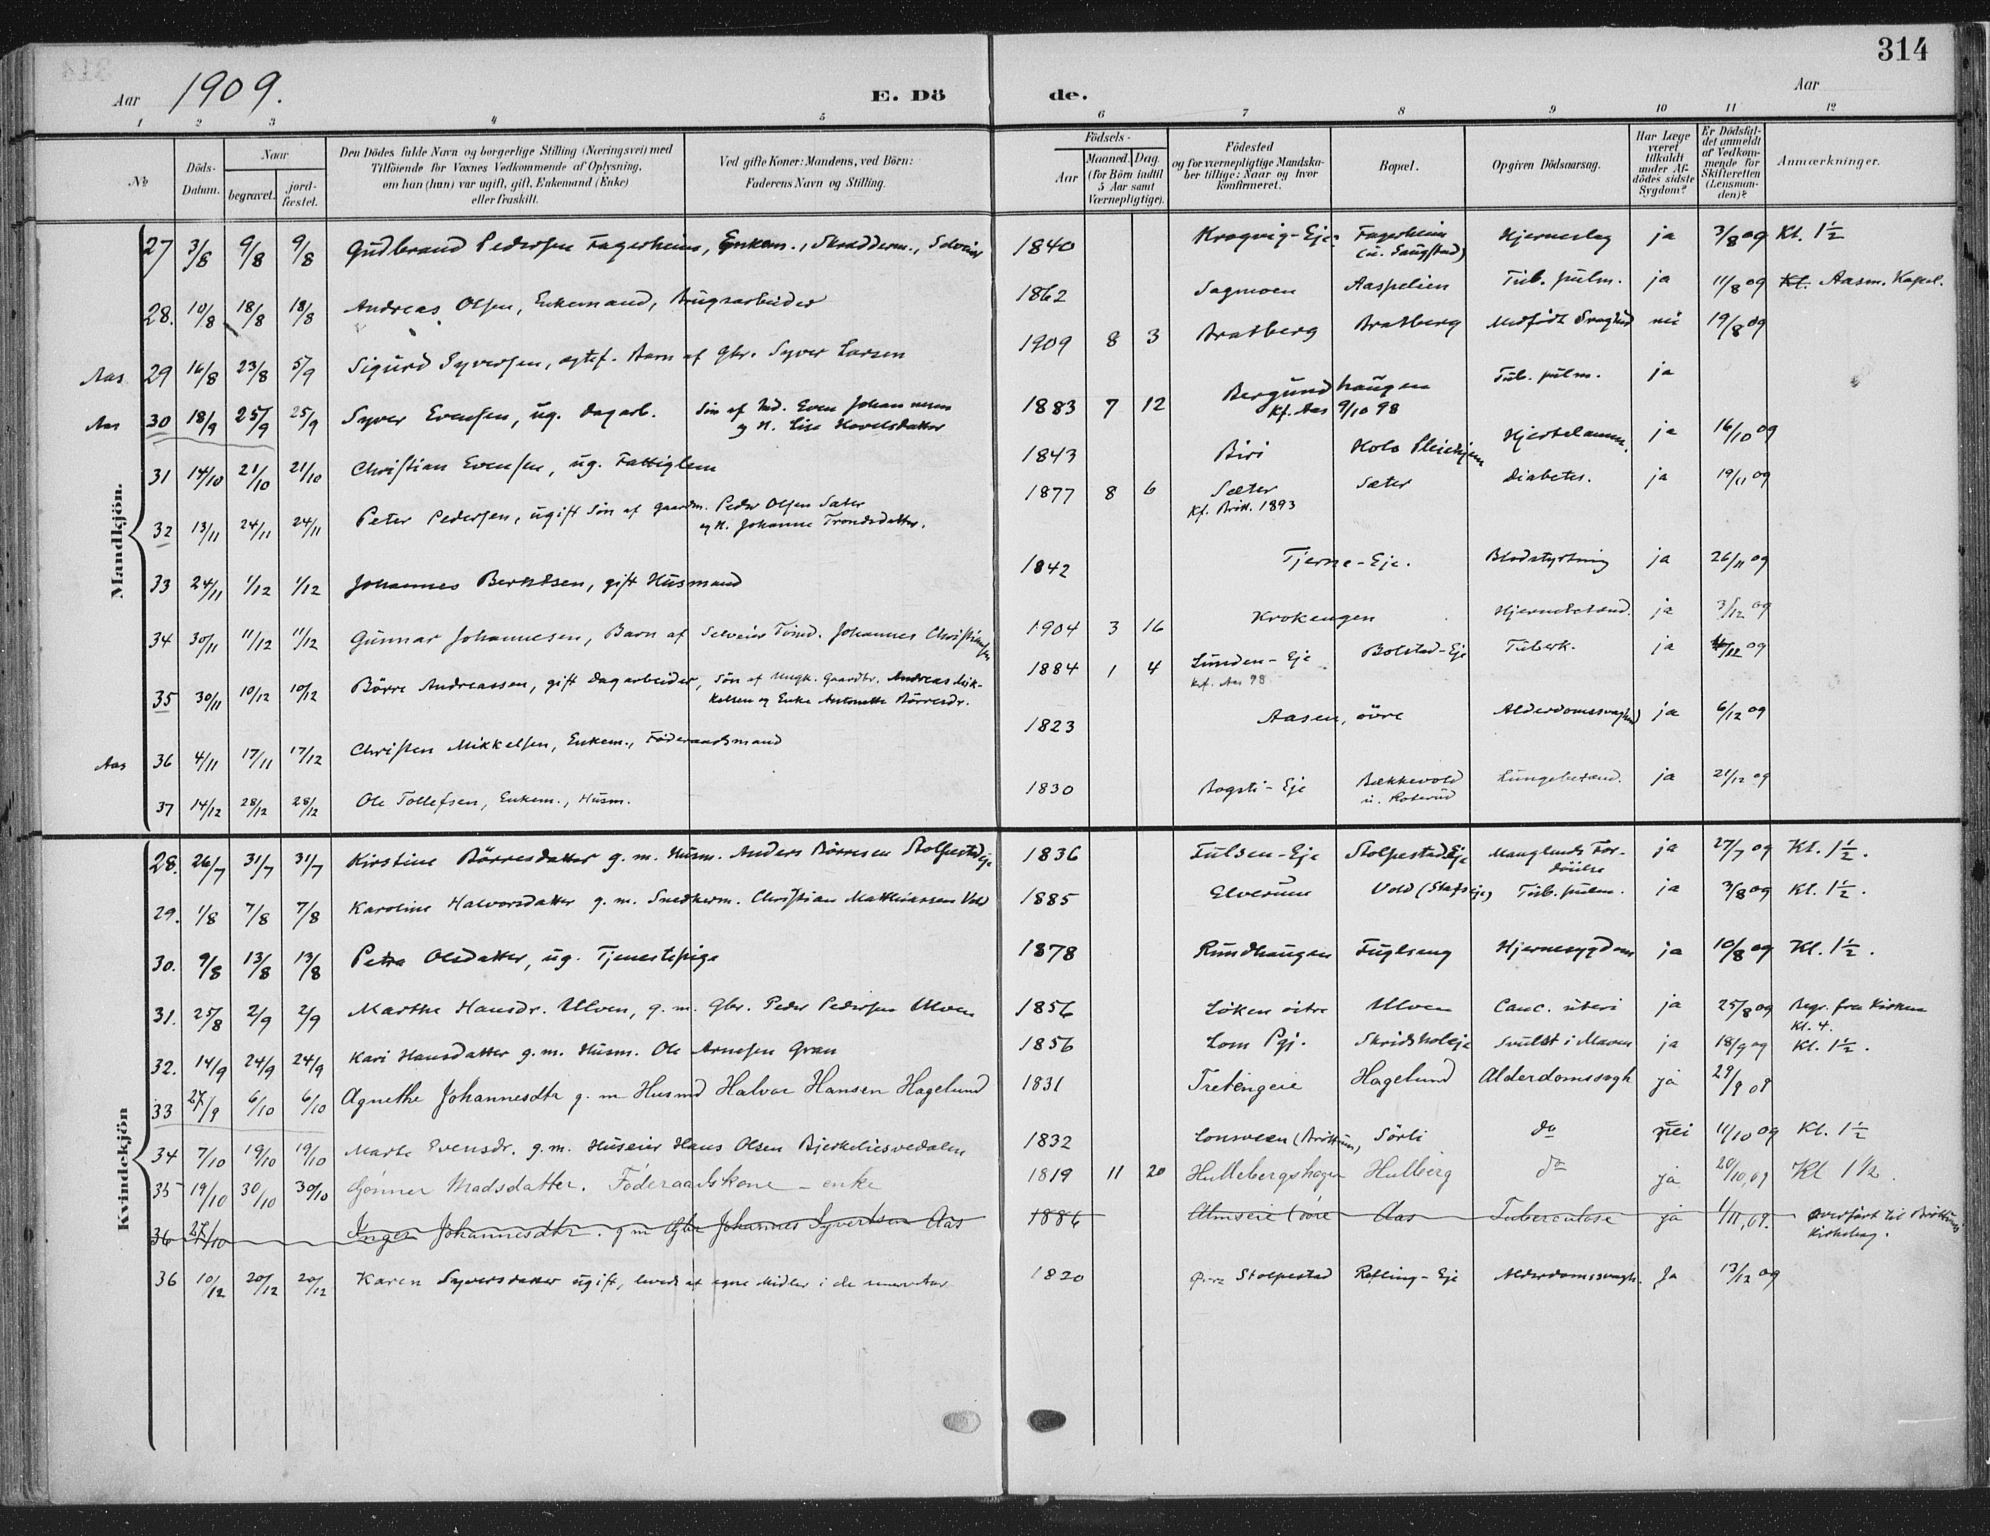 314
Aar 1909.
E. Dö de.
Aar
1 2 3 4 5 6 7 8 9 10 11 12
No
Döds-Datum.
Naar
begravet.
jord-fæstet.
Den Dödes fulde Navn og borgerlige Stilling (Næringsvei) med
Tilföiende for Voxnes Vedkommende af Oplysning,
om han (hun) var ugift, gift, Enkemand (Enke)
eller fraskilt.
Ved gifte Koner: Mandens, ved Börn:
Faderens Navn og Stilling.
Födsels-
Aar
Maaned. Dag.
(for Börn indtil
5 Aar samt
Værnepligtige).
Födested
og for værnepligtige Mandska-
ber tillige: Naar og hvor
konfirmeret.
Bopæl.
Opgiven Dödsaarsag.
Har Læge
været
tilkaldt
under Af-
dödes sidste
Sygdom?
Er Dödsfal-
det anmeldt
af Vedkom-
mende for
Skifteretten
(Lensman-
den)?
Anmærkninger.
Mandkjön.
27 3/8 9/8 9/8 Gudbrand Pedersen Fagerheim, Enkem., Skrædderm., Selveier 1840 Kragvig-Eje Fagerheim (u. Saugstad) Hjerneslag ja 3/8 09 Kl. 1½
28. 10/8 18/8 18/8 Andreas Olsen, Enkemand, Brugsarbeider 1862 Sagmoen Aaspelien Tub. pulm. ja 11/8 09 Kl. Aasm. Kapel.
Aas 29 16/8 23/8 5/9 Sigurd Syversen, ægtef. Barn af Gbr. Syver Larsen 1909 8 3 Bratberg Bratberg Medfödt Svaghed nei 19/8 09
Aas 30 18/9 25/9 25/9 Syver Evensen, ug. dagarb. Sön af Ind. Even Johannesen og H. Lise Hovelsdatter 1883 7 12 Bergundhaugen Kf. Aas 9/10 98 Tub. pulm. ja
31 14/10 21/10 21/10 Christian Evensen, ug. Fattiglem 1843 Biri Holo Pleiehjem Hjertelamm. ja 16/10 09
32 13/11 24/11 24/11 Peter Pedersen, ugift Sön af Gaardm. Peder Olsen Sæter og H. Johanne Trondsdatter. 1877 8 6 Sæter Kf. Brött. 1893 Sæter Diabetes. ja 19/11 09
33 24/11 1/12 1/12 Johannes Berntsen, gift Husmand 1842 Tjerne-Eje. Blodstyrtning ja 26/11 09
34 30/11 11/12 11/12 Gunnar Johannesen, Barn af Selveier Tömd. Johannes Christiansen 1904 3 16 Krokengen Hjernebetænd. ja 3/12 09
35 30/11 10/12 10/12 Börre Andreassen, gift dagarbeider, Sön af Ungk. Gaardbr. Andreas Mikkelsen og Enke Antonette Börresdr. 1884 1 4 Lunden-Eje Kf. Aas 98 Bolstad-Eje Tuberk. ja 4/12 09
Aas 36 4/11 17/11 17/12 Christen Mikkelsen, Enkem., Föderaadsmand 1823 Aasen, övre Alderdomssvaghed ja 6/12 09
37 14/12 28/12 28/12 Ole Tollefsen, Enkem., Husm. 1830 Bogsti-Eje Bækkevold u. Roterud Lungebetænd. ja 21/12 09
Kvindekjön
28. 26/7 31/7 31/7 Kirstine Börresdatter g. m. Husm. Anders Börresen Stolpestadeje 1836 Fulsen-Eje Stolpestad Eje Manglende Fordöielse ja 27/7 09 Kl. 1½.
29. 1/8 7/8 7/8 Karoline Halvorsdatter g. m. Snedkerm. Christian Matthiassen Vold 1885 Elverum Vold (Stafseje) Tub. pulm. ja 3/8 09 Kl. 1½.
30. 9/8 13/8 13/8 Petra Olsdatter, ug. Tjenestepige 1878 Rundhaugen Fuglseng Hjernesygdom ja 10/8 09 Kl. 1½.
31. 25/8 2/9 2/9 Marthe Hansdr. Ulven, g. m. Gbr. Peder Pedersen Ulven 1856 Löken östre Ulven Canc. uteri ja 25/8 09 Begr. fra Kirken Kl. 4.
32. 14/9 24/9 24/9 Kari Hansdatter g. m. Husm. Ole Arnesen Gran 1856 Lom Pgj. Skridsholeje Svulst i Maven ja 18/9 09 Kl. 1½.
33 27/9 6/10 6/10 Agnethe Johannesdtr g. m Husmd Halvor Hansen Hagelund 1831 Tretengeie Hagelund Alderdomssvgh ja 29/9 09
34 7/10 19/10 19/10 Marte Evensdr. g. m. Huseier Hans Olsen Bjerkeliesvedalen 1832 Lonsveen (Bröttum) Sörli do nei 11/10 09 Kl. 1½
35 19/10 30/10 30/10 Gönner Madsdatter. Föderaadskone - enke 1819 11 20 Hullebergshagen Hulberg do ja 20/10, 09 Kl 1½.
36 27/10 Inger Johannesdtr. g m Gbr Johannes Syvertsen Aas 1886 Almseie övre Aas Tuberculose ja 1/11, 09. overfört til Bröttums Kirkebog.
36 10/12 20/12 20/12 Karen Syversdatter ugift, levede af egne Midler i de senere Aar 1820 Övre Stolpestad Refling-Eje Alderdomssvagh. Ja 13/12 09